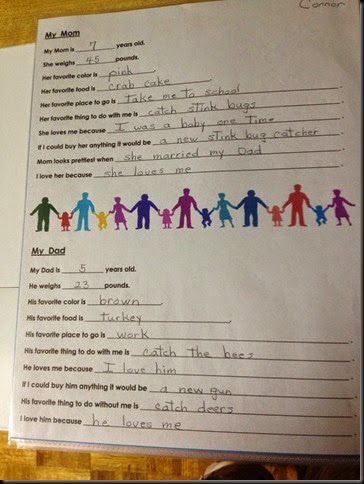 Connor
My Mom
My Mom is 7 years old.
She weighs 45 pounds.
Her favorite color is pink.
Her favorite food is crab cake.
Her favorite place to go is take me to school.
Her favorite thing to do with me is catch stink bugs.
She loves me because I was a baby one Time.
If I could buy her anything it would be a new stink bug catcher.
Mom looks prettiest when she married my Dad
I love her because she loves me
My Dad
My Dad is 5 years old.
He weighs 23 pounds.
His favorite color is brown.
His favorite food is turkey.
His favorite place to go is work.
His favorite thing to do with me is catch the bees
He loves me because I love him
If I could buy him anything it would be a new gun
His favorite thing to do without me is catch deers
I love him because he loves me